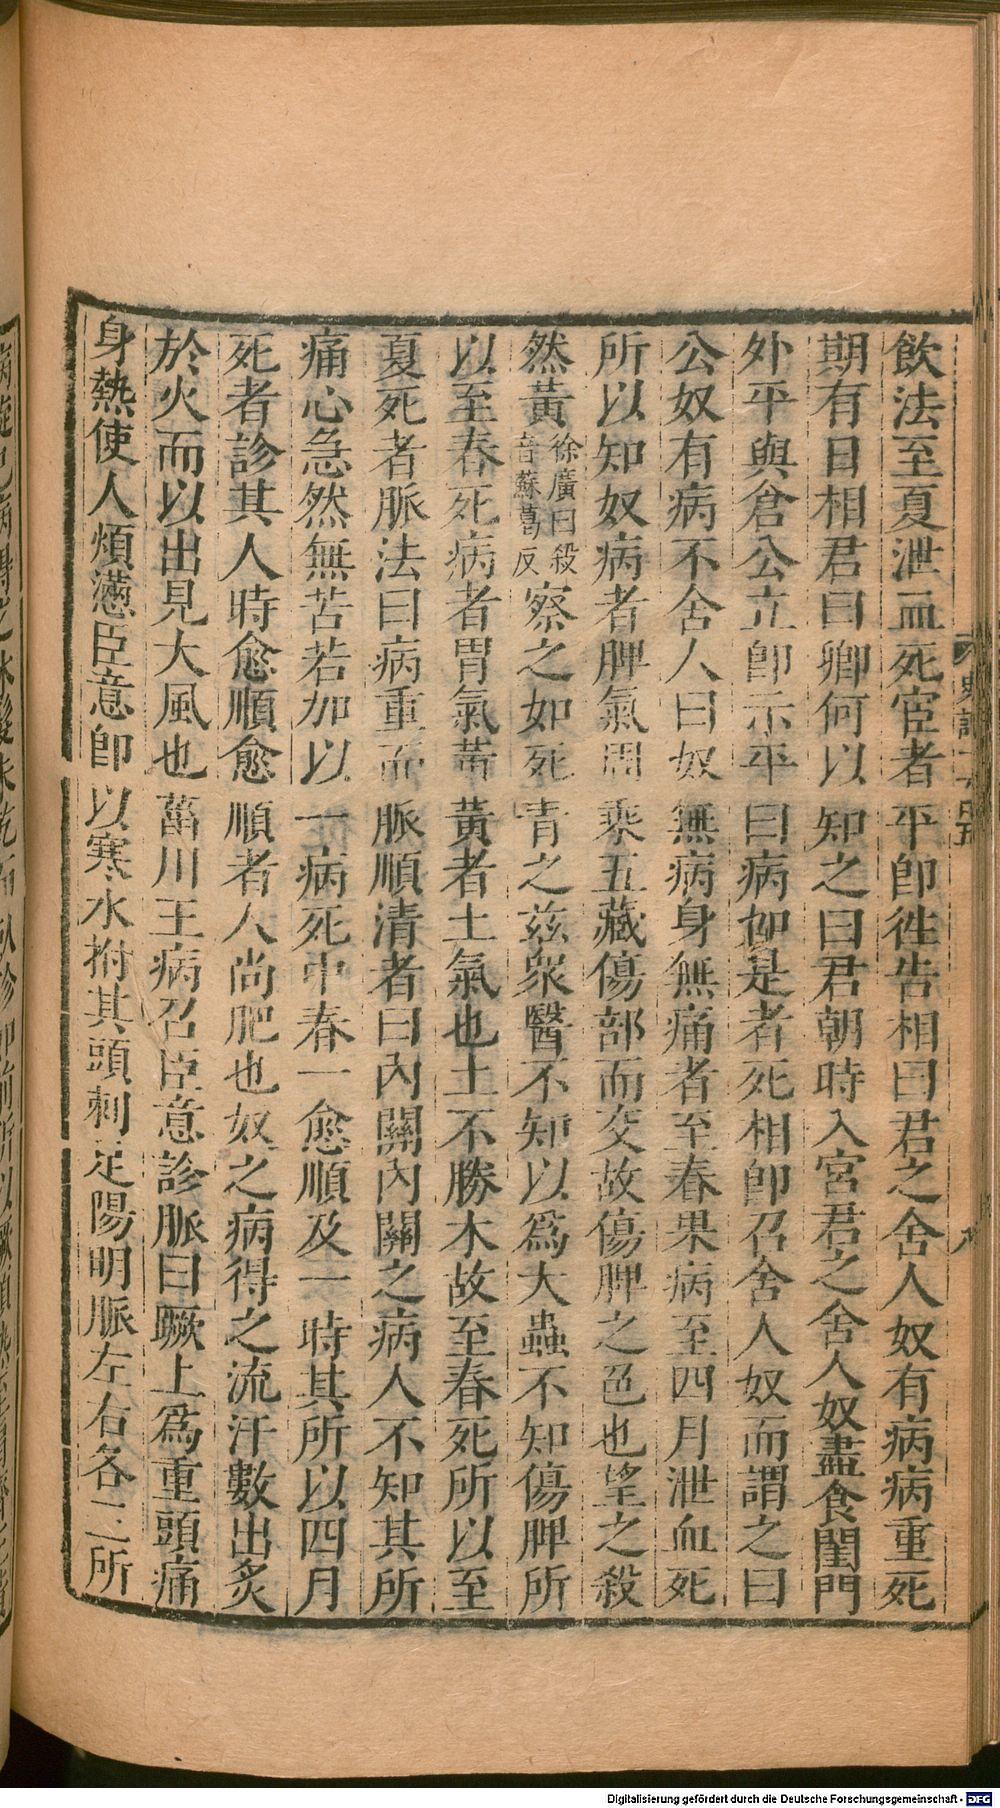 飲法至夏泄血死宦者平即徃告相曰君之舍人奴有病病重死
期有日相君曰卿何以知之曰君朝時入宮君之舍人奴盡食閨門
外平與倉公立即示平曰病如是者死相即召舍人奴而謂之曰
公奴有病不舍人曰奴無病身無痛者至春果病至四月泄血死
所以知奴病者脾氣周乘五藏傷部而交故傷脾之色也望之殺
然黃徐廣曰殺音蘇葛反察之如死青之茲衆醫不知以爲大蟲不知傷脾所
以至春死病者胃氣黃黃者土氣也土不勝木故至春死所以至
夏死者脈法曰病重而脈順清者曰內關內關之病人不知其所
痛心急然無苦若加以一病死中春一愈順及一時其所以四月
死者診其人時愈順愈順者人尚肥也奴之病得之流汗數出炙
於火而以出見大風也菑川王病召臣意診脈曰蹶上爲重頭痛
身熱使人煩懣臣意即以寒水拊其頭刺足陽明脈左右各三所
Digitalisierung gefördert durch die Deutsche Forschungsgemeinschaft - DFG